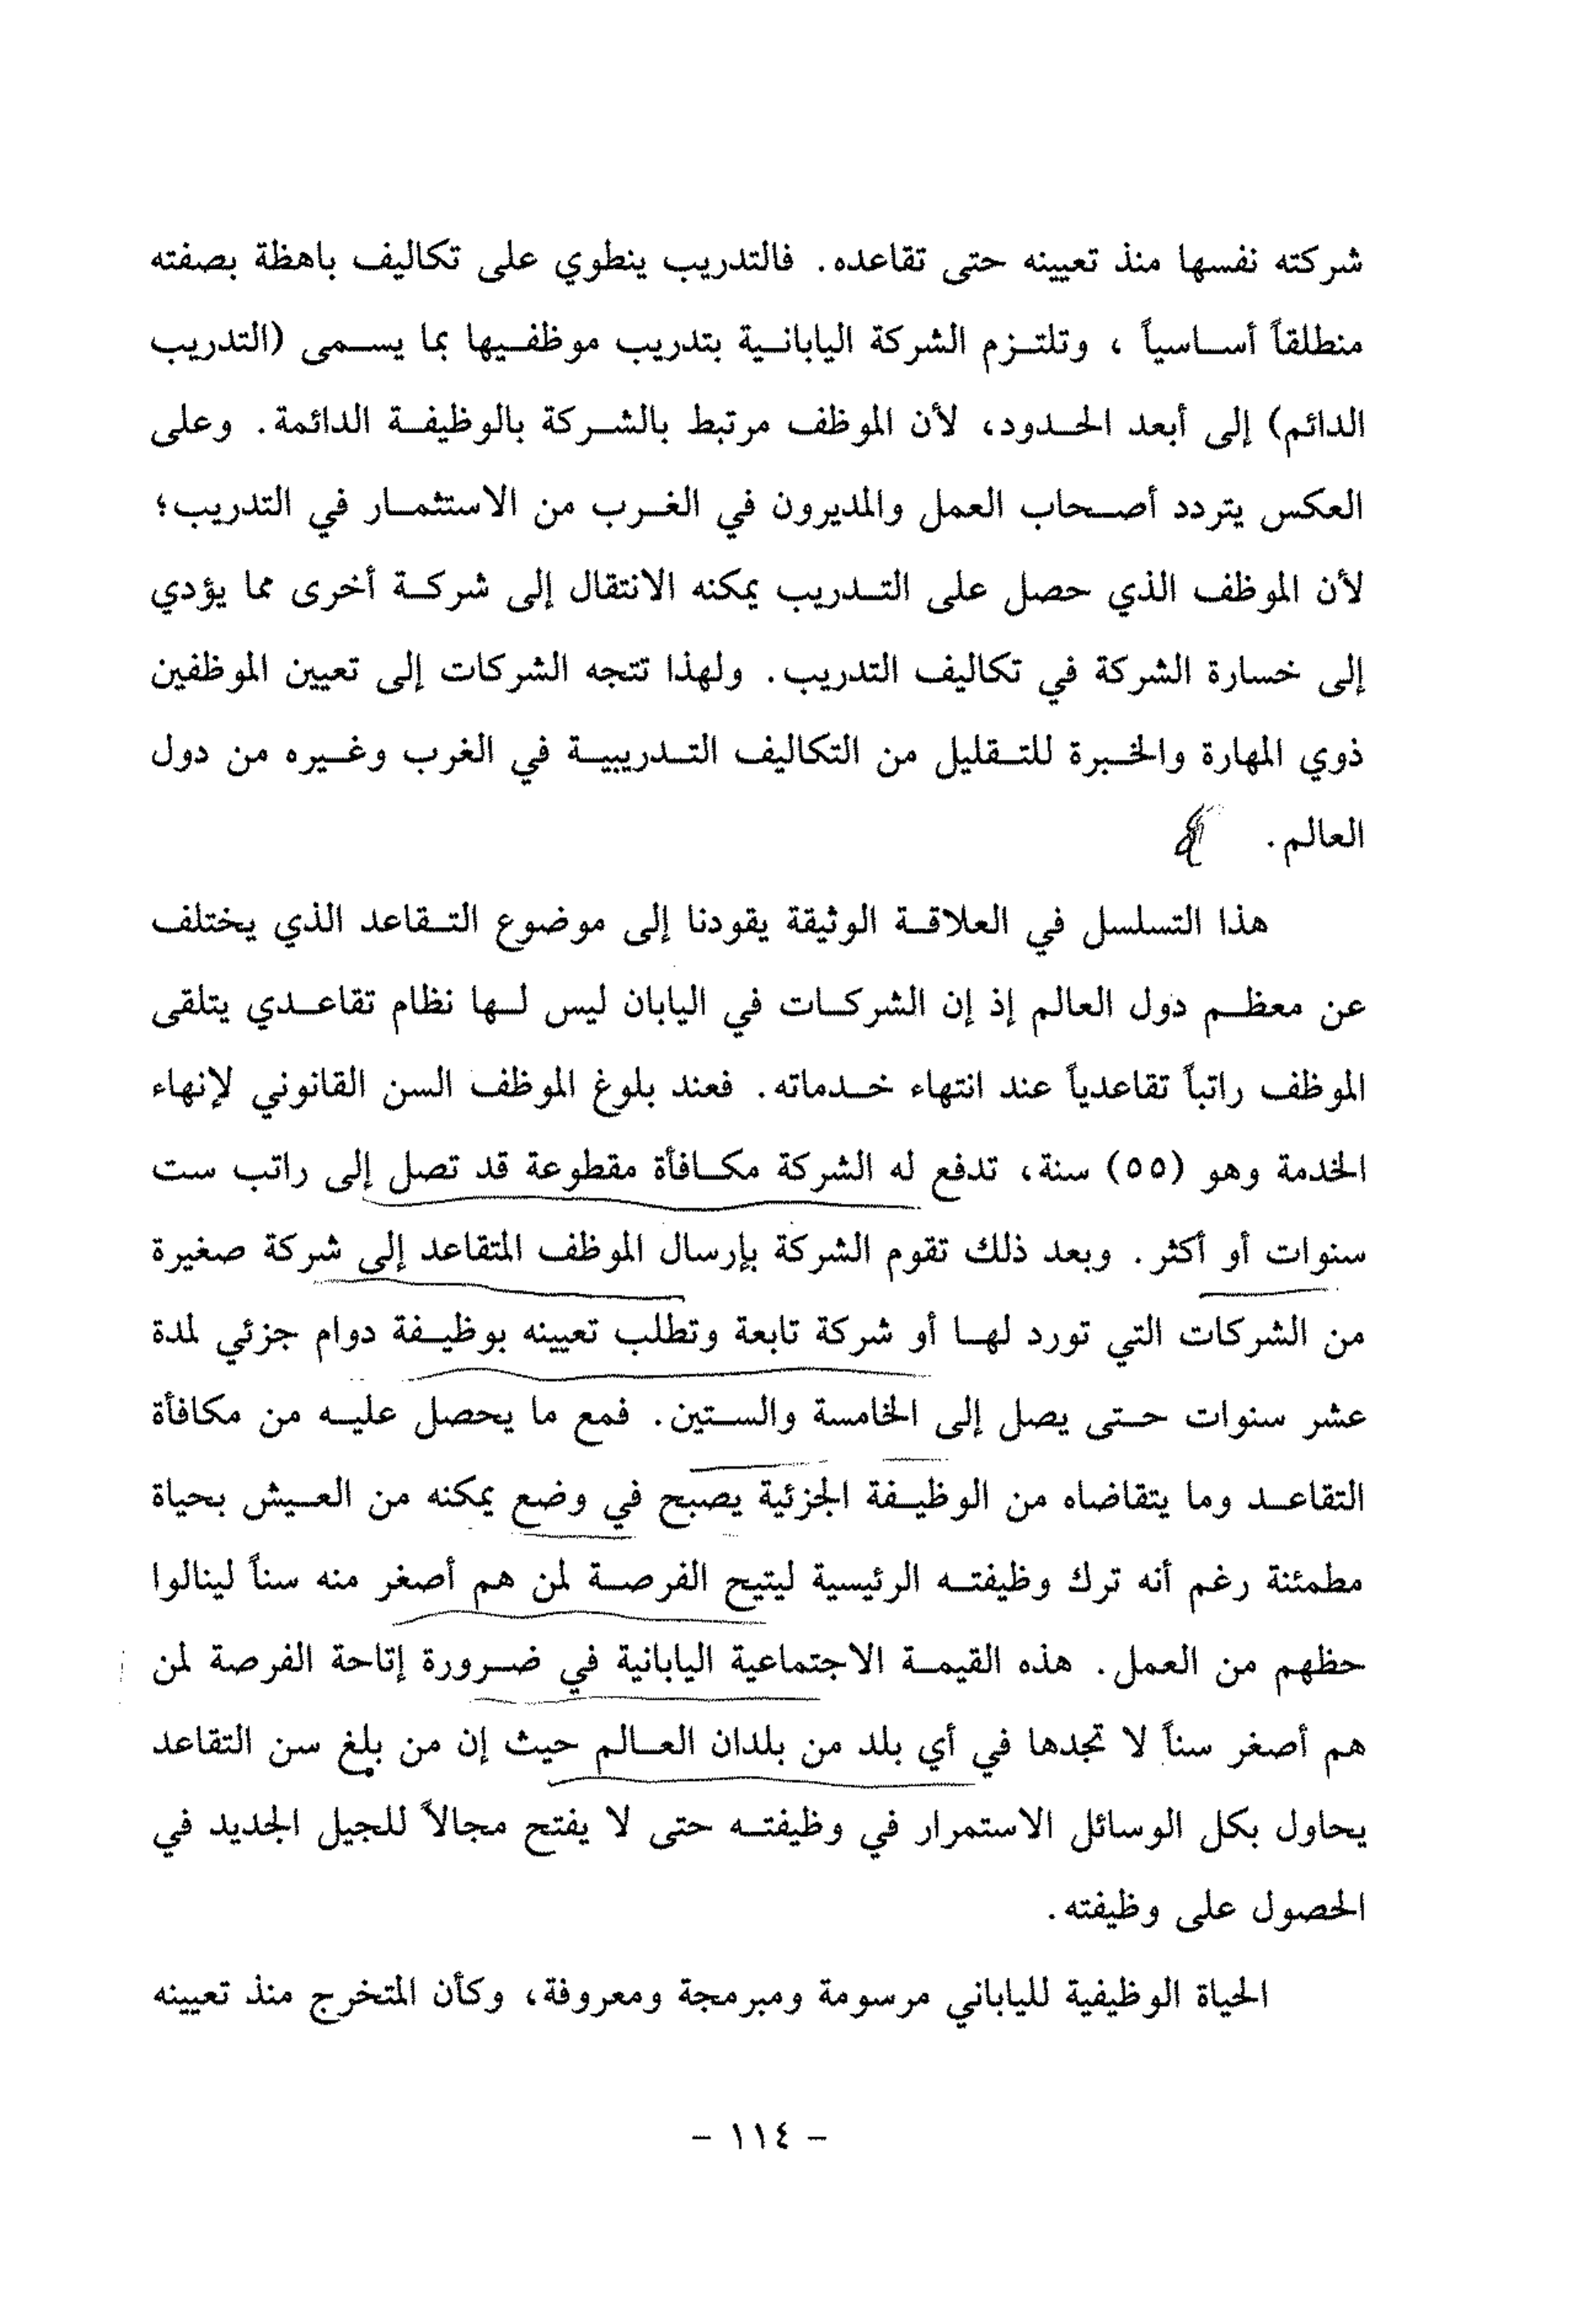 شركته نفسها منذ تعيينه حتى تقاعده. فالتدريب ينطوي على تكاليف باهظة بصفته
منطلقاً أساسياً ، وتلتزم الشركة اليابانية بتدريب موظفيها بما يسمى (التدريب
الدائم) إلى أبعد الحدود، لأن الموظف مرتبط بالشركة بالوظيفة الدائمة. وعلى
العكس يتردد أصحاب العمل والمديرون في الغرب من الاستثمار في التدريب؛
لأن الموظف الذي حصل على التدريب يمكنه الانتقال إلى شركة أخرى مما يؤدي
إلى خسارة الشركة في تكاليف التدريب. ولهذا تتجه الشركات إلى تعيين الموظفين
ذوي المهارة والخبرة للتقليل من التكاليف التدريبية في الغرب وغيره من دول
العالم.
هذا التسلسل في العلاقة الوثيقة يقودنا إلى موضوع التقاعد الذي يختلف
عن معظم دول العالم إذ إن الشركات في اليابان ليس لها نظام تقاعدي يتلقى
الموظف راتباً تقاعدياً عند انتهاء خدماته. فعند بلوغ الموظف السن القانوني لإنهاء
الخدمة وهو (٥٥) سنة، تدفع له الشركة مكافأة مقطوعة قد تصل إلى راتب ست
سنوات أو أكثر. وبعد ذلك تقوم الشركة بإرسال الموظف المتقاعد إلى شركة صغيرة
من الشركات التي تورد لها أو شركة تابعة وتطلب تعيينه بوظيفة دوام جزئي لمدة
عشر سنوات حتى يصل إلى الخامسة والستين. فمع ما يحصل عليه من مكافأة
التقاعد وما يتقاضاه من الوظيفة الجزئية يصبح في وضع يمكنه من العيش بحياة
مطمئنة رغم أنه ترك وظيفته الرئيسية ليتيح الفرصة لمن هم أصغر منه سناً لينالوا
حظهم من العمل. هذه القيمة الاجتماعية اليابانية في ضرورة إتاحة الفرصة لمن
هم أصغر سناً لا تجدها في أي بلد من بلدان العالم حيث إن من بلغ سن التقاعد
يحاول بكل الوسائل الاستمرار في وظيفته حتى لا يفتح مجالاً للجيل الجديد في
الحصول على وظيفته.
الحياة الوظيفية للياباني مرسومة ومبرمجة ومعروفة، وكأن المتخرج منذ تعيينه
- ١١٤ -